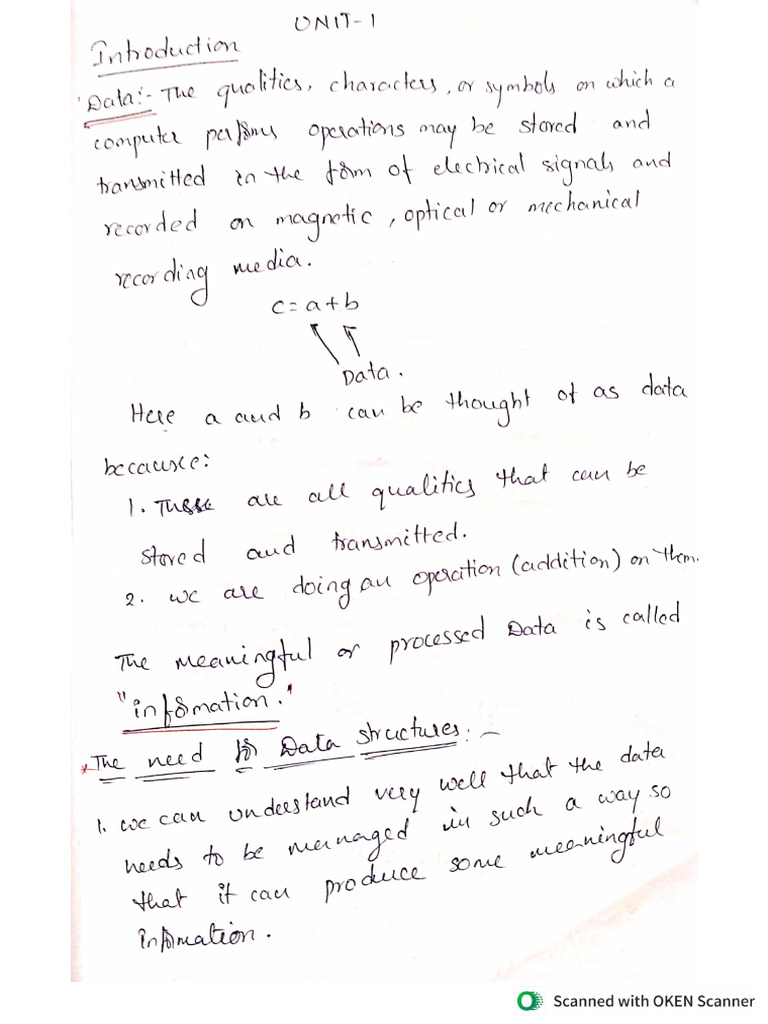 UNIT-1
Introduction
Data:- The qualities, characters, or symbols on which a
computer performs operations may be stored and
transmitted in the form of electrical signals and
recorded on magnetic, optical or mechanical
recording media.
c=a+b
Data.
Here a and b can be thought of as data
because:
1. These are all qualities that can be
stored and transmitted.
2. we are doing an operation (addition) on them.
The meaningful or processed Data is called
"information."
*The need for Data structures:-
1. we can understand very well that the data
needs to be managed in such a way so
that it can produce some meaningful
information.
Scanned with OKEN Scanner